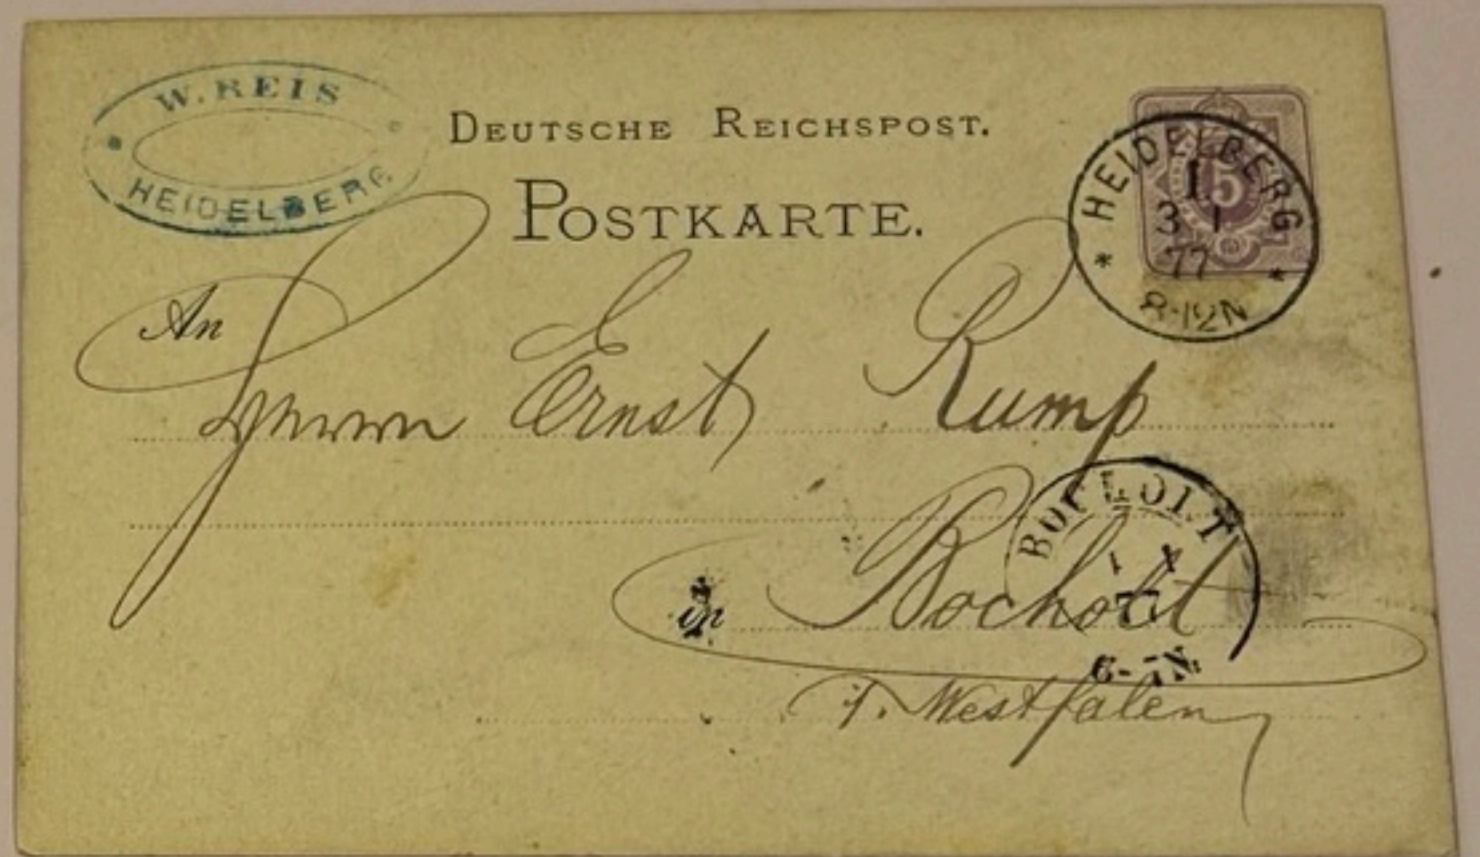 W. REIS
HEIDELBERG
DEUTSCHE REICHSPOST.
POSTKARTE.
HEIDELBERG
I
5
3 1
77
8-12N
An
Herrn Ernst Rump
BOCHOLT
1 X
77
6-7N.
in Bocholt
i. Westfalen